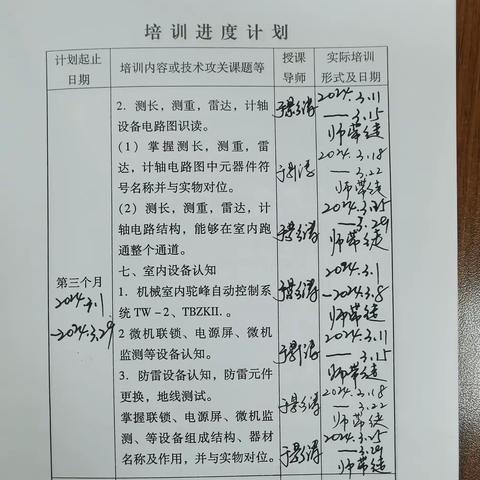 培训进度计划
计划起止
日期
培训内容或技术攻关课题等
授课
导师
实际培训
形式及日期
第三个月
2024.3.1
-2024.3.29
2. 测长，测重，雷达，计轴
设备电路图识读。
(1) 掌握测长，测重，雷
达，计轴电路图中元器件符
号名称并与实物对位。
(2) 测长，测重，雷达，计
轴电路结构，能够在室内跑
通整个通道。
七、室内设备认知
1. 机械室内驼峰自动控制系
统 TW-2、TBZKII.。
2 微机联锁、电源屏、微机
监测等设备认知。
3. 防雷设备认知，防雷元件
更换，地线测试。
掌握联锁、电源屏、微机监
测、等设备组成结构、器材
名称及作用，并与实物对位。
2024.3.11
—3.15
师带徒
2024.3.18
—3.22
师带徒
2024.3.25
—3.29
师带徒
2024.3.1
-2024.3.8
师带徒
2024.3.11
—3.15
师带徒
2024.3.18
—3.22
师带徒
2024.3.25
—3.29
师带徒